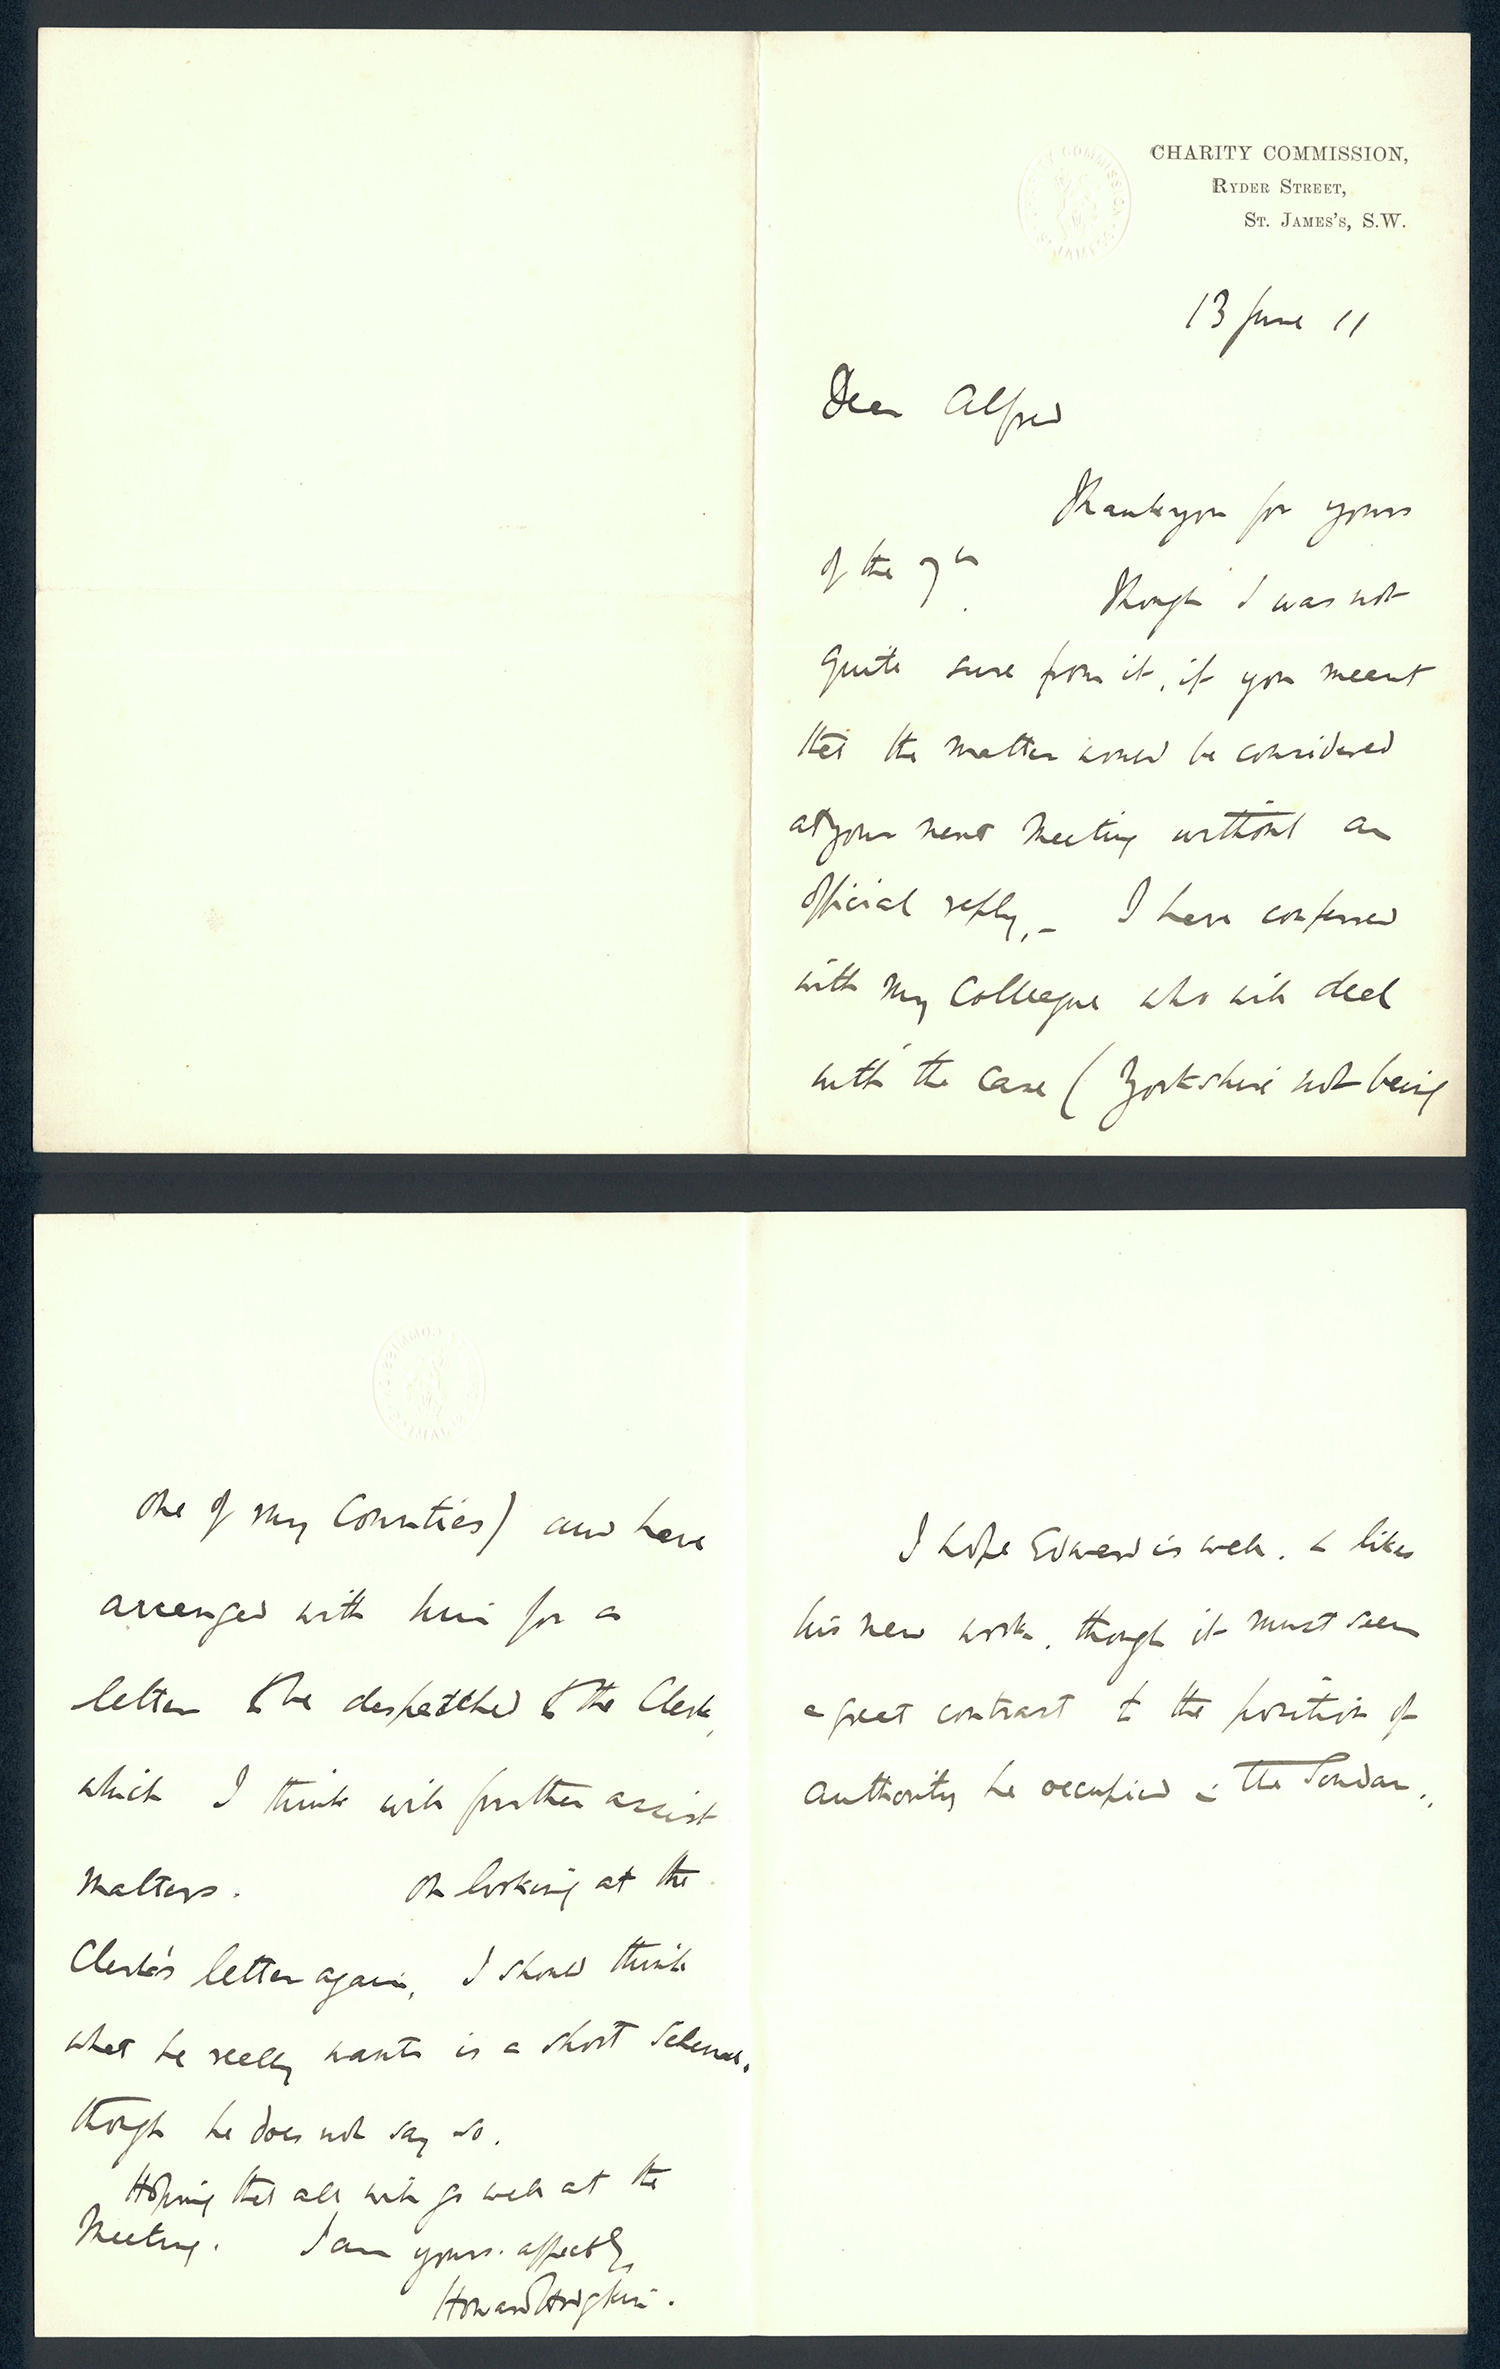 CHARITY COMMISSION,
RYDER STREET,
ST. JAMES'S, S.W.
13 June 11
Dear Alfred
Thank you for yours
of the 7th
Though I was not
quite sure from it, if you meant
that the matter would be considered
at your next meeting without an
official reply, – I have conferred
with my Colleague who will deal
with the case (Yorkshire not being
one of my Counties) and have
arranged with him for a
letter to be despatched to the Clerk,
which I think will further assist
matters. On looking at the
Clerk's letter again, I should think
what he really wants is a short Scheme,
though he does not say so.
Hoping that all will go well at the
Meeting. I am yours affectly
Howard Hodgkin.
I hope Edward is well. & likes
his new work, though it must seem
a great contrast to the position of
authority he occupied in the